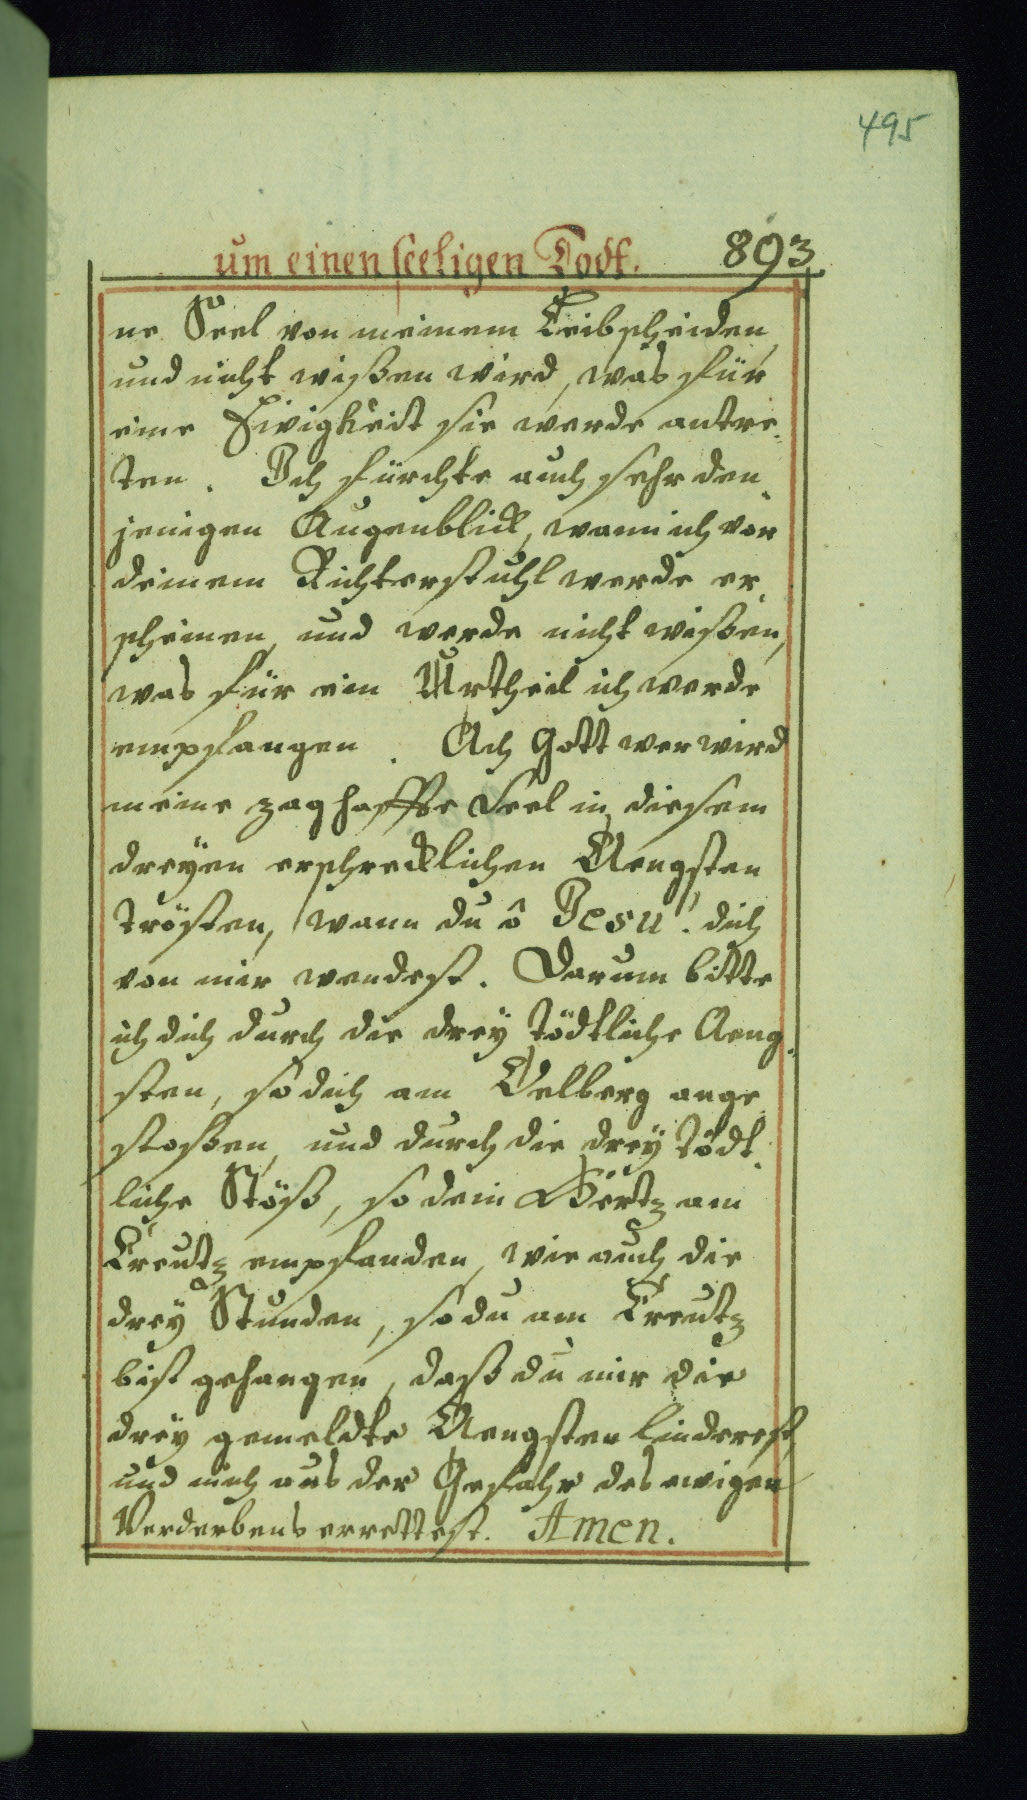 495
um einen seeligen Todt. 893
ne Seel von meinem Leib scheiden
und nicht wißen wird, was für
eine Ewigkeit sie werde antre-
ten. Ich fürchte auch sehr den-
jenigen Augenblick, wann ich vor
deinem Richterstuhl werde er-
scheinen, und werde nicht wißen,
was für ein Urtheil ich werde
empfangen. Ach Gott wer wird
meine zaghaffte Seel in diesem
dreyen erschrecklichen Aengsten
trösten, wann du ô Jesu! dich
von mir wendest. Darum bitte
ich dich durch die drey tödtliche Aeng-
sten, so dich am Oelberg ange-
stoßen, und durch die drey tödt-
liche Stöß, so dein Hertz am
Creutz empfanden, wie auch die
drey Stunden, so du am Creutz
bist gehangen, daß du mir die
drey gemeldte Aengsten linderest,
und mich aus der Gefahr des ewigen
Verderbens errettest. Amen.